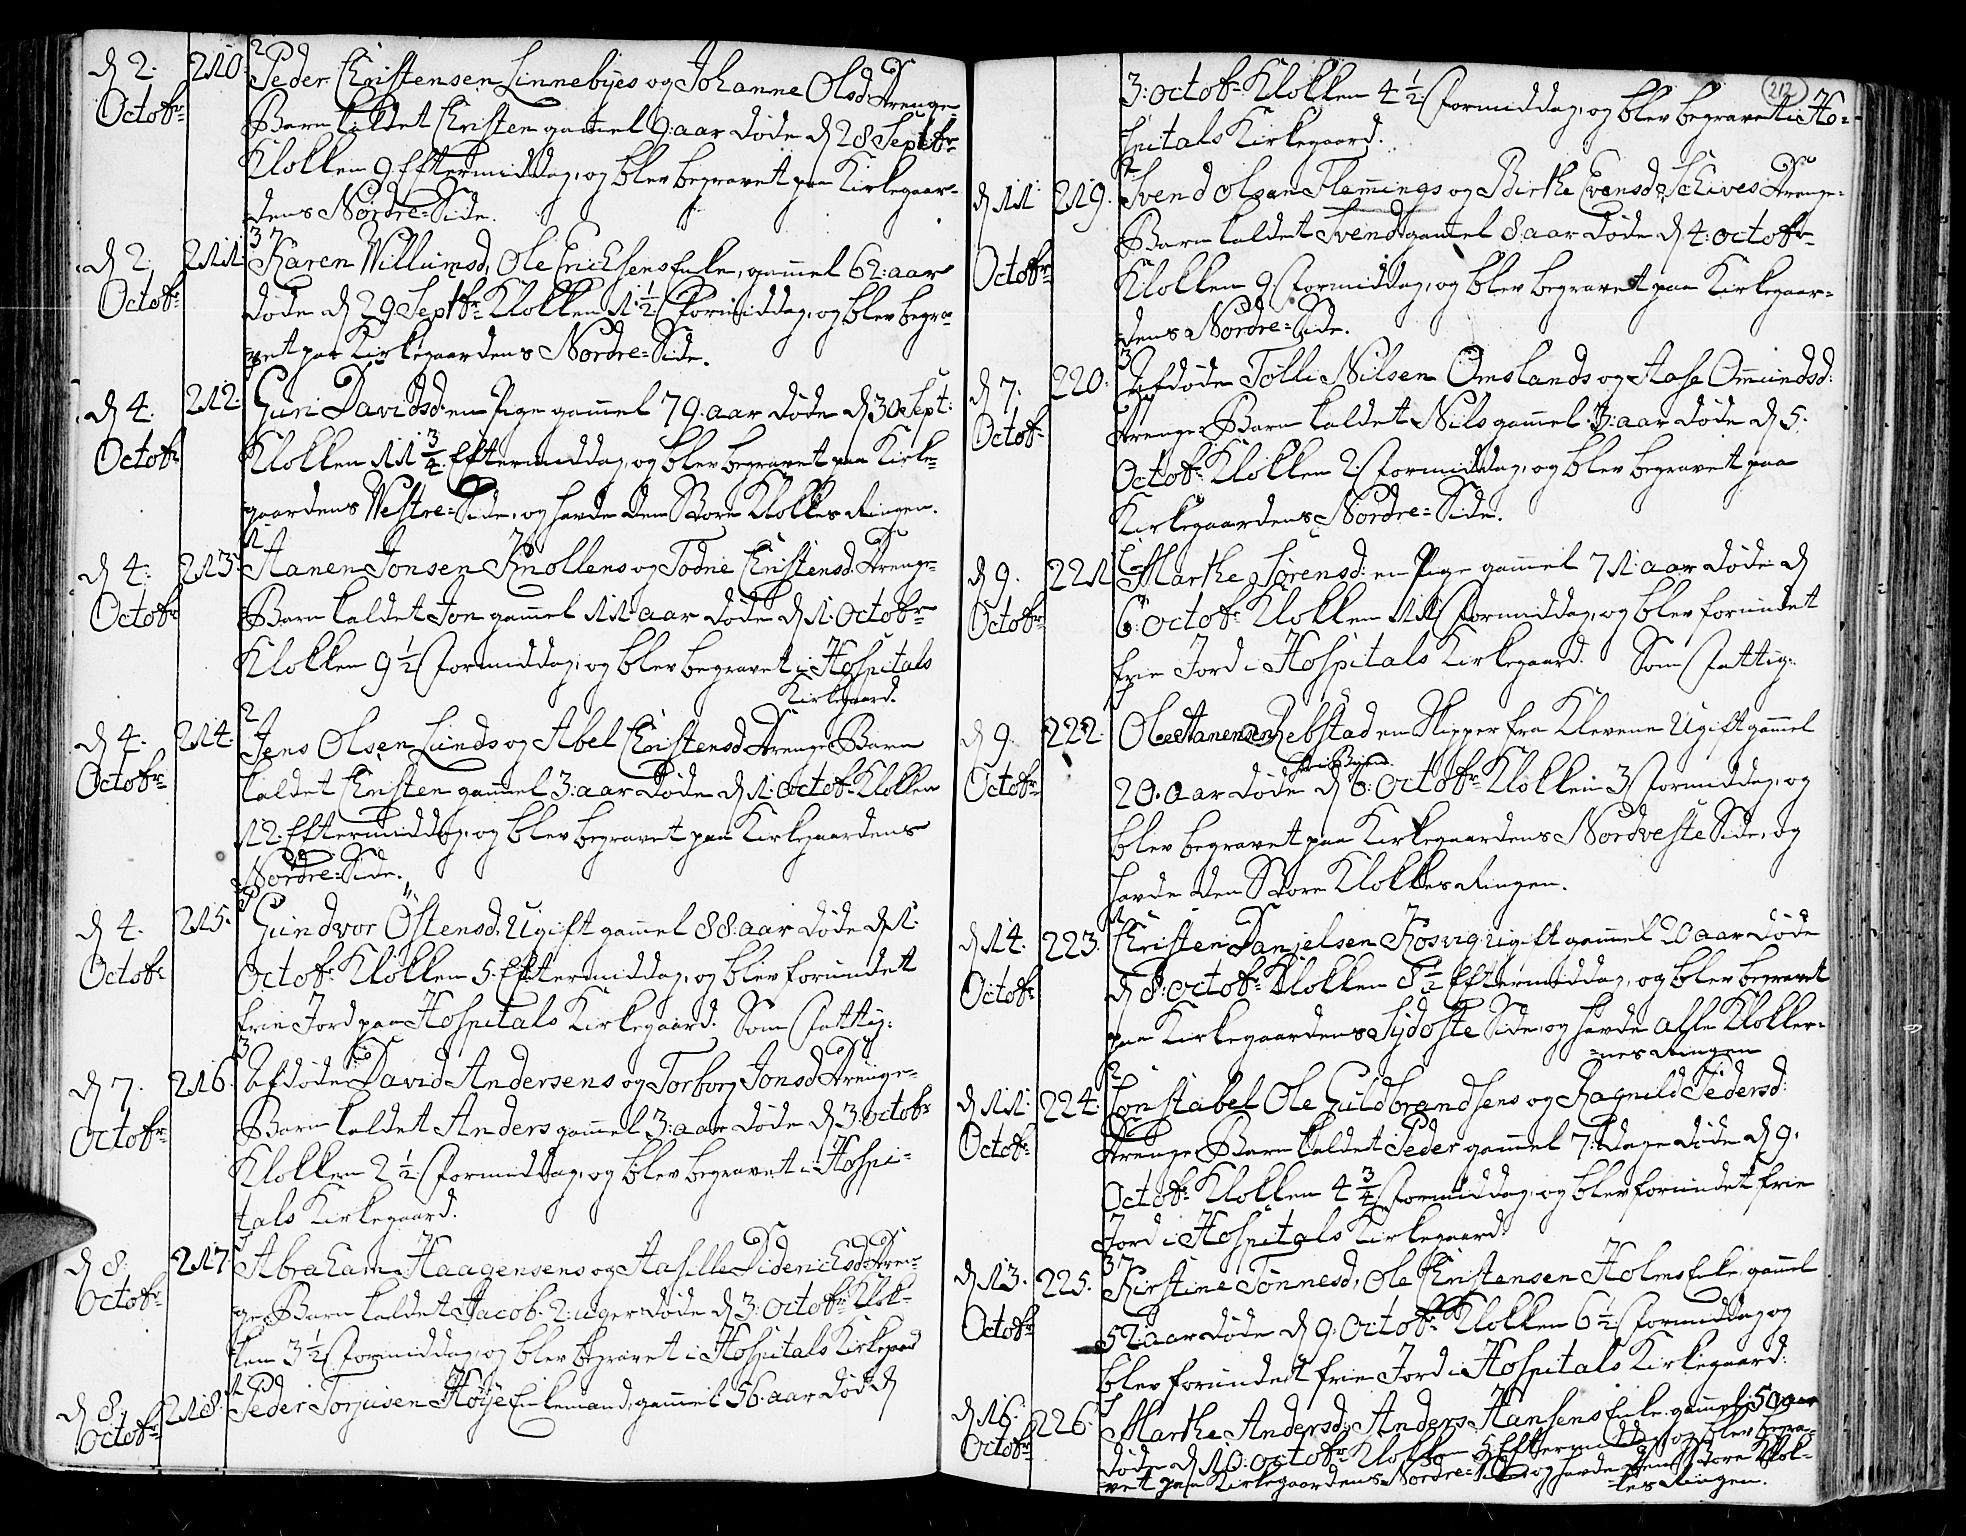 d 2. 210. Peder Christensen Linnebyes og Johanne Olsd Drenge-
Octobr. Barn kaldet Christen gamel 9: aar døde d 28 Septbr
Klokken 9 Eftermiddag, og blev begravet paa Kirkegaar-
dens Nordre-Side.
d 2. 211. Karen Willumsd, Ole Ericksens Enke, gamel 62: aar
Octobr. døde d 29 Septbr Klokken 11 1/2: Formiddag, og blev begra-
vet paa Kirkegaardens Nordre-Side.
d 4. 212. Guri Davidsd: en Pige gamel 79: aar døde d 30 Sept:
Octobr Klokken 11 3/4 Eftermiddag, og blev begravet paa Kirke-
gaardens Vestre-Side, og havde den Store Klokkes Ringen.
d 4. 213. Hanen Jonsen Knollens og Todne Christensd. Drenge-
Octobr Barn kaldet Jon gamel 11 aar døde d 1. Octobr
Klokken 9 1/2 Formiddag, og blev begravet i Hospitals
Kirkegaard.
d 4. 214. Jens Olsen Lunds og Abel Christensd Drenge Barn
Octobr. kaldet Christen gamel 3: aar døde d 1. Octobr Klokken
12. Eftermiddag, og blev begravet paa Kirkegaardens
Nordre-Side.
d 4. 215. Gundvor Östensd, Ugift gamel 88: aar døde d 1.
Octobr Octobr Klokken 5. Eftermiddag, og blev forundet
frie Jord paa Hospitals Kirkegaard. Som Fattig:
d 7. 216. Afdøde David Andersens og Torborg Jonsd Drenge-
Octobr. Barn kaldet Anders gamel 3: aar døde d 3 Octobr
Klokken 2 1/2 Formiddag, og blev begravet i Hospi-
tals Kirkegaard.
d 8. 217. Abraham Haagensens og Aasille Didericksd: Dren-
Octobr. ge-Barn kaldet Jacob. 2: uger døde d 3: Octobr Klok-
ken 3 1/2 Formiddag, og blev begravet i Hospitals Kirkegaard
d 8. 218. Peder Torjusen Høye Enkemand, gamel 56: aar død d
Octobr.
212
3: Octobr Klokken 4 1/2 Formiddag, og blev begravet i Ho-
spitals Kirkegaard.
d 11 219. Svend Olsen Flemings og Birthe Evensd: Schives Drenge-
Octobr Barn kaldet Svend gamel 8: aar døde d 4: Octobr
Klokken 9 Formiddag, og blev begravet paa Kirkegaar-
dens Nordre-Side.
d 7. 220. Afdøde Tolli Nilsen Omslands og Aase Omundsd:
Octobr Drenge Barn kaldet Nils gamel 3: aar døde d 5.
Octobr Klokken 2: Formiddag, og blev begravet paa
Kirkegaardens Nordre-Side.
d 9. 221 Marthe Sørensd: en Pige gamel 71: aar døde d
Octobr 6: Octobr Klokken 11 Formiddag, og blev forundet
frie Jord i Hospitals Kirkegaard. Som Fattig:
d 9. 222. Ole Hanensen Rebstad en Skipper fra Klevene Ugift gamel
Octobr 20: aar døde d 6: Octobr Klokken 3 Formiddag, og
blev begravet paa Kirkegaardens Nordveste Side, og
havde den Store Klokkes Ringen.
d 14. 223. Christen Danielsen Kosvig Ugift gamel 20 aar døde
Octobr d 8: Octobr Klokken 8 1/2 Eftermiddag, og blev begravet
paa Kirkegaardens Sydoste Side, og havde alle Klokker-
nes Ringen
d 11. 224. Constabel Ole Guldbrandsens og Ragnild Pedersd:
Octobr Drenge Barn kaldet Peder gamel 7: dage døde d 9.
Octobr Klokken 4 3/4 Formiddag, og blev forundet frie
Jord i Hospitals Kirkegaard.
d 13. 225. Kirstine Tønnesd, Ole Christensen Holms Enke, gamel
Octobr 52: aar døde d 9: Octobr Klokken 6 1/2 Formiddag og
blev forundet frie Jord i Hospitals Kirkegaard:
d 16. 226. Marthe Andersd, Anders Hansens Enke. gamel 50 aar
Octobr døde d 10: Octobr Klokken 5. Eftermiddag, og blev begra-
vet paa Kirkegaardens Nordre-Side og havde den Store Klok-
kes Ringen.